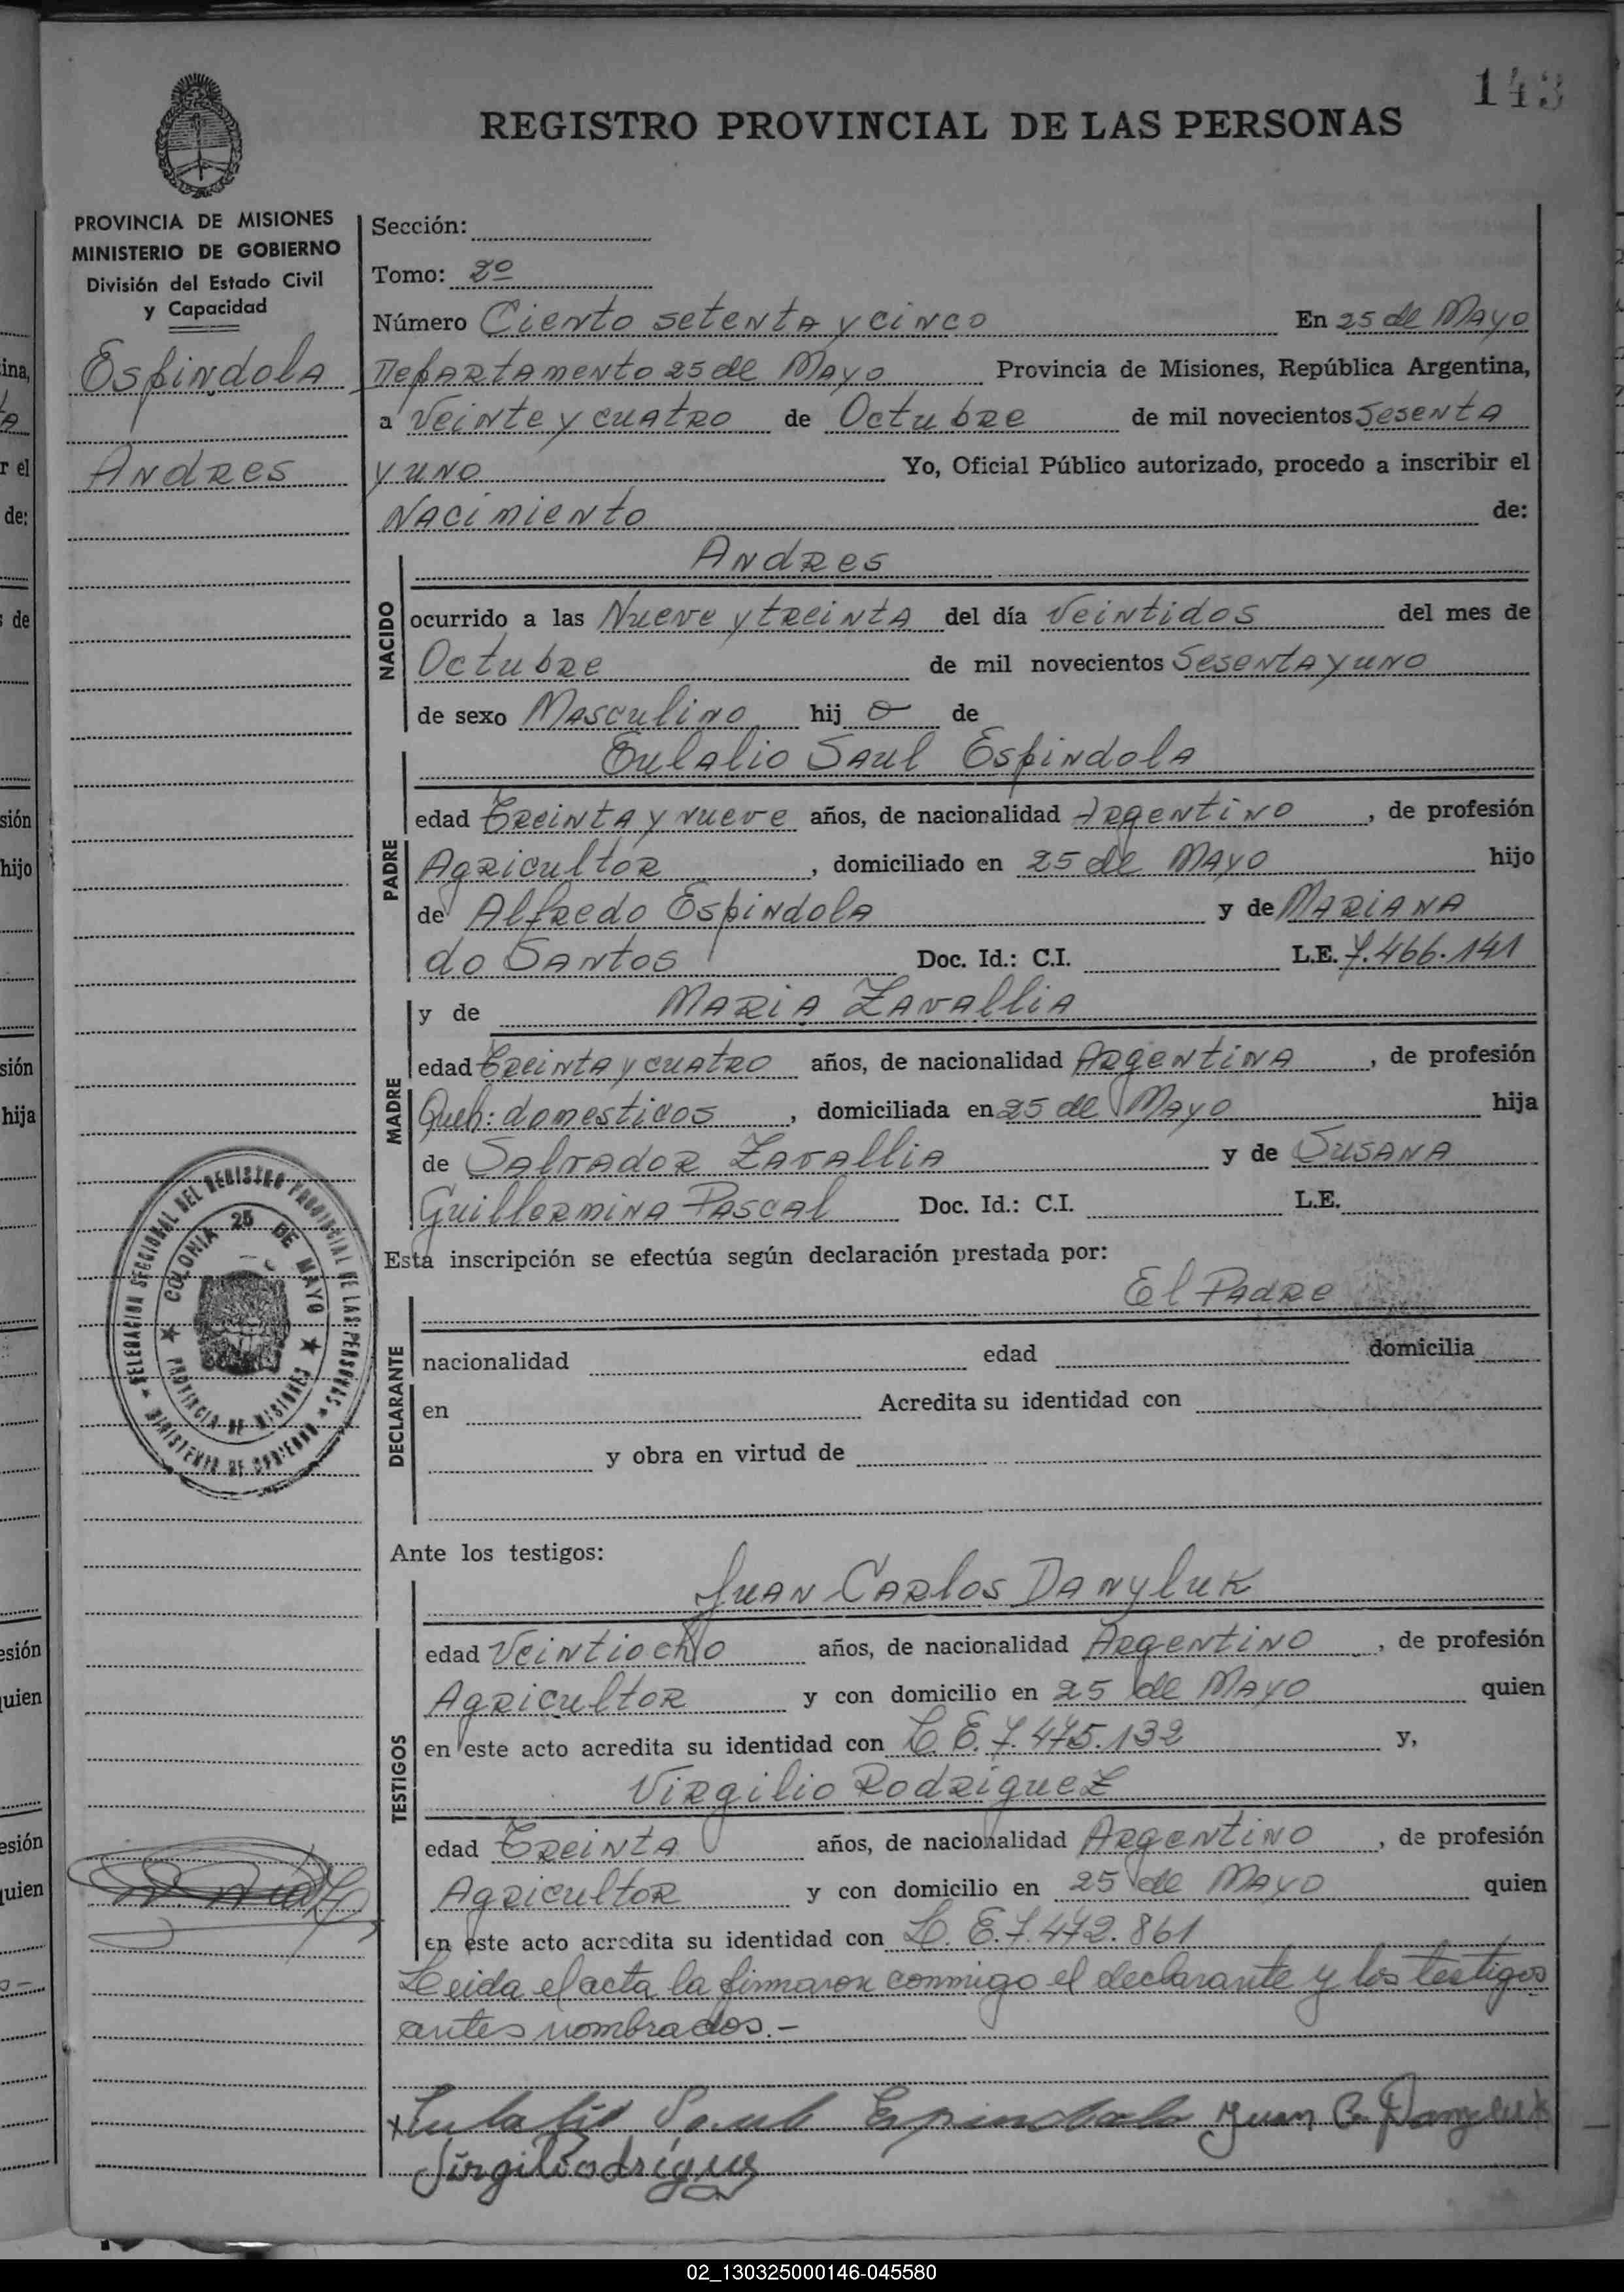 143
REGISTRO PROVINCIAL DE LAS PERSONAS
PROVINCIA DE MISIONES
MINISTERIO DE GOBIERNO
División del Estado Civil
y Capacidad
Espindola
Andres
Sección:
Tomo: 2º
Número Ciento setenta y cinco En 25 de Mayo
Departamento 25 de Mayo Provincia de Misiones, República Argentina,
a Veinte y cuatro de Octubre de mil novecientos Sesenta
y uno Yo, Oficial Público autorizado, procedo a inscribir el
Nacimiento de:
NACIDO
Andres
ocurrido a las Nueve y treinta del día Veintidos del mes de
Octubre de mil novecientos Sesenta y uno
de sexo Masculino hij o de
PADRE
Eulalio Saul Espindola
edad Treinta y nueve años, de nacionalidad Argentino, de profesión
Agricultor, domiciliado en 25 de Mayo hijo
de Alfredo Espindola y de Mariana
do Santos Doc. Id.: C.I. L.E. 7.466.141
MADRE
y de Maria Zavallia
edad Treinta y cuatro años, de nacionalidad Argentina, de profesión
Queh: domesticos, domiciliada en 25 de Mayo hija
de Salvador Zavallia y de Susana
Guillermina Pascal Doc. Id.: C.I. L.E.
Esta inscripción se efectúa según declaración prestada por:
DECLARANTE
El Padre
nacionalidad edad domicilia
en Acredita su identidad con
y obra en virtud de
DELEGACION SECCIONAL DEL REGISTRO PROVINCIAL DE LAS PERSONAS
MINISTERIO DE GOBIERNO
COLONIA 25 DE MAYO
PROVINCIA DE MISIONES
Ante los testigos:
TESTIGOS
Juan Carlos Danyluk
edad Veintiocho años, de nacionalidad Argentino, de profesión
Agricultor y con domicilio en 25 de Mayo quien
en este acto acredita su identidad con L. E. 7.475.132 y,
Virgilio Rodriguez
edad Treinta años, de nacionalidad Argentino, de profesión
Agricultor y con domicilio en 25 de Mayo quien
en este acto acredita su identidad con L. E. 7.472.861
Leida el acta la firmaron conmigo el declarante y los testigos
antes nombrados.-
Eulalio Saul Espindola Juan C. Danyluk
02_130325000146-045580